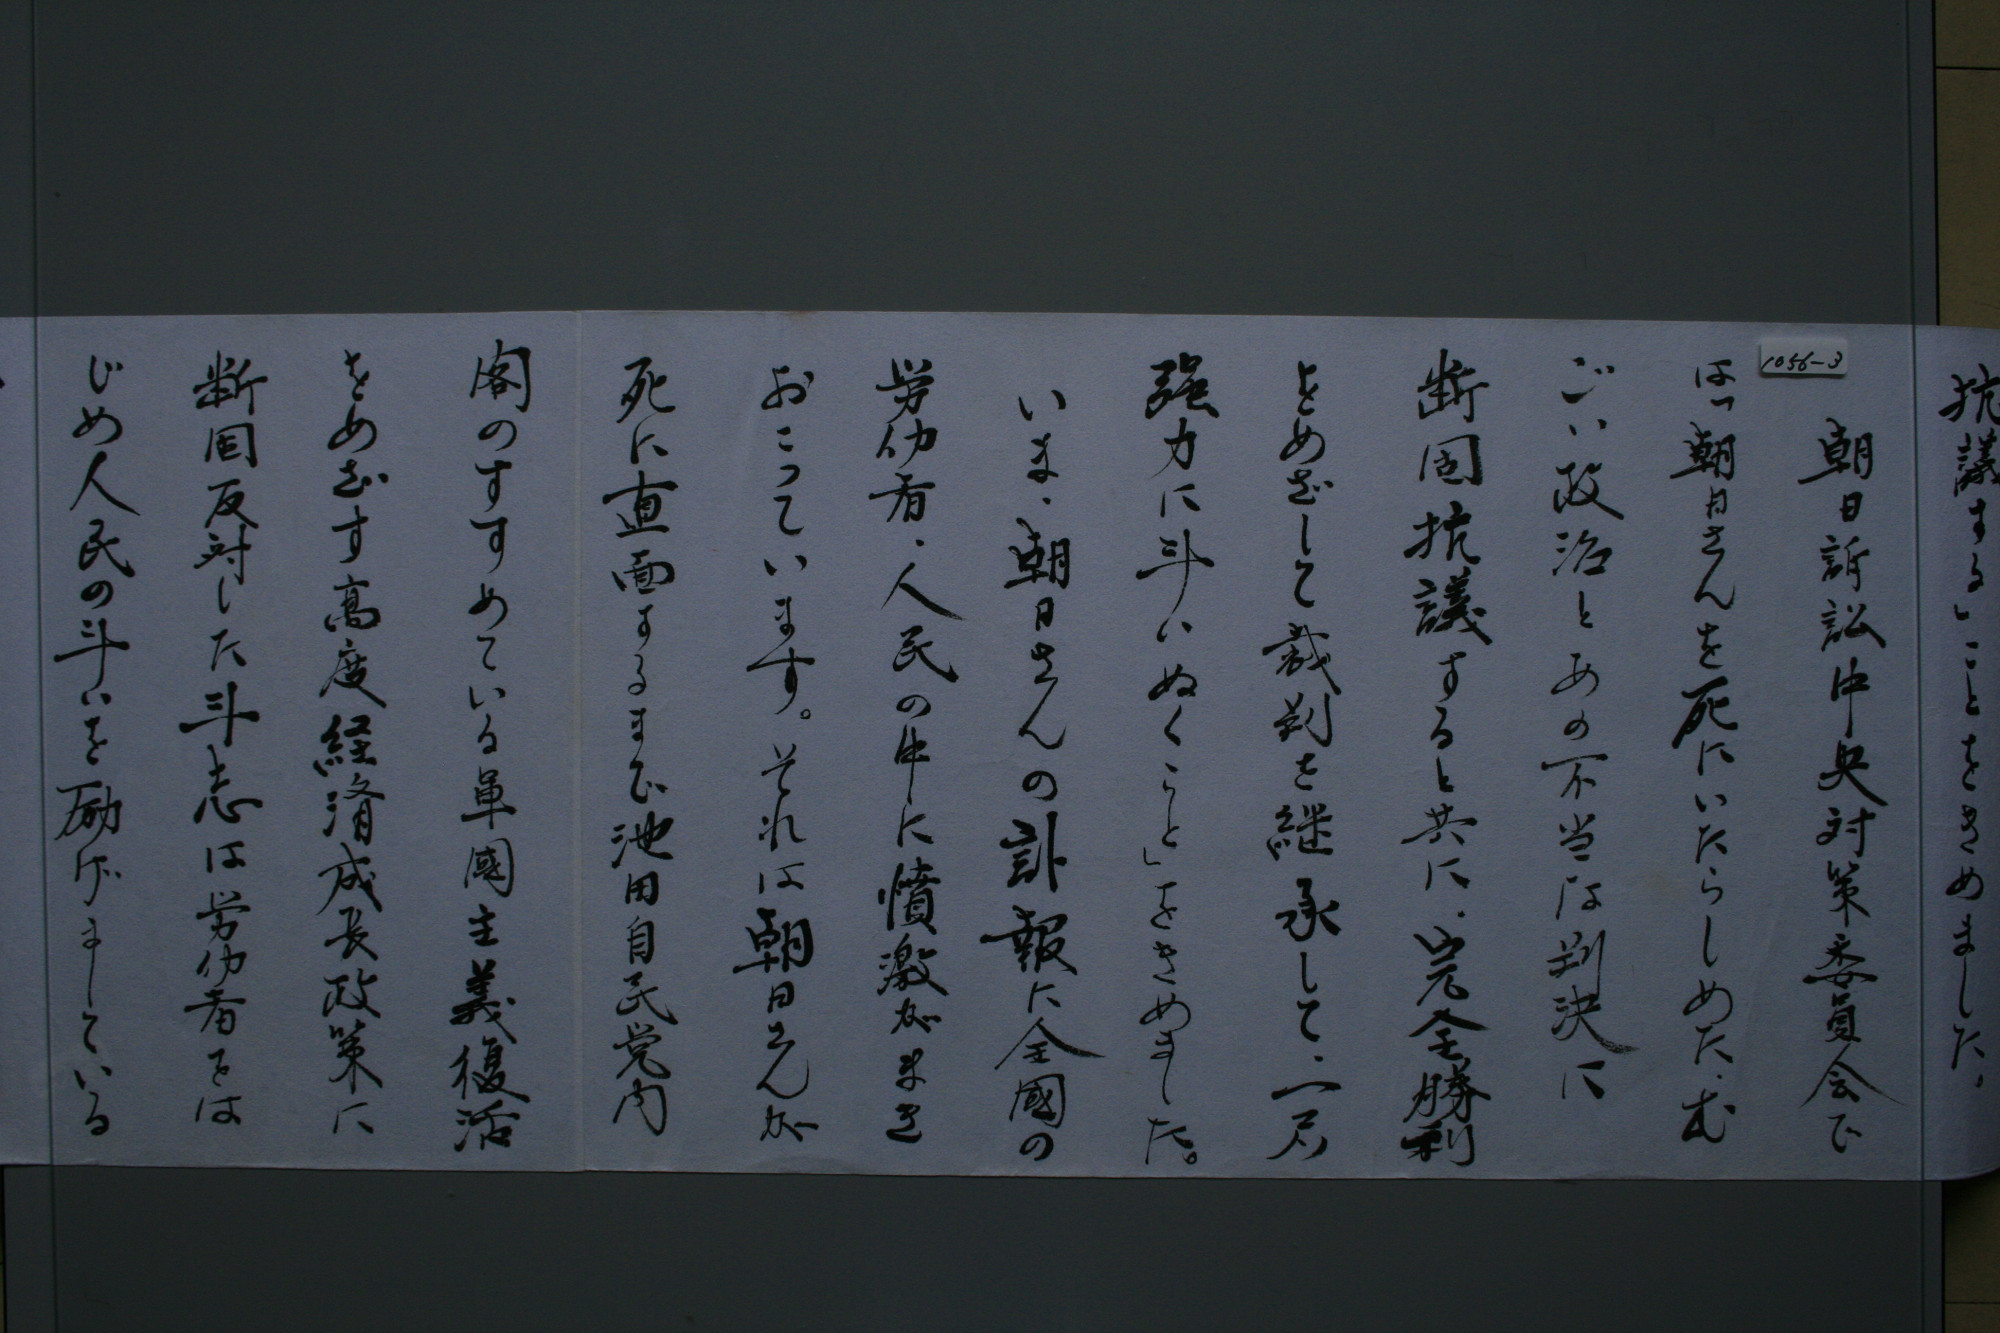 抗議する」ことをきめました。
1056-3
朝日訴訟中央対策委員会で
は「朝日さんを死にいたらしめた、む
ごい政治とあの不当な判決に
断固抗議すると共に、完全勝利
をめざして裁判を継承して、一层
強力に斗いぬくこと」をきめました。
いま、朝日さんの訃報に全國の
労仂者、人民の中に憤激がまき
おこっています。それは朝日さんが
死に直面するまで池田自民党内
閣のすすめている軍國主義復活
をめざす高度経済成長政策に
断固反対した斗志は労仂者をは
じめ人民の斗いを励げましている